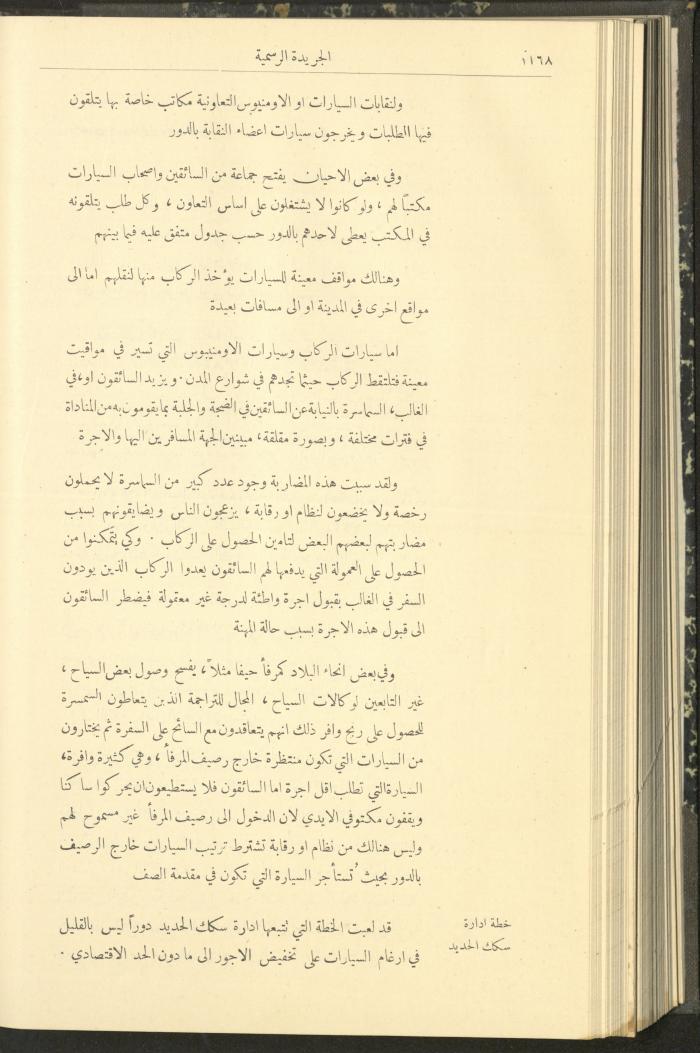 ١١٦٨ الجريدة الرسمية
ولنقابات السيارات او الاومنيبوس التعاونية مكاتب خاصة بها يتلقون
فيها الطلبات ويخرجون سيارات اعضاء النقابة بالدور
وفي بعض الاحيان يفتح جماعة من السائقين واصحاب السيارات
مكتباً لهم ، ولو كانوا لا يشتغلون على اساس التعاون ، وكل طلب يتلقونه
في المكتب يعطى لاحدهم بالدور حسب جدول متفق عليه فيما بينهم
وهنالك مواقف معينة للسيارات يؤخذ الركاب منها لنقلهم اما الى
مواقع اخرى في المدينة او الى مسافات بعيدة
اما سيارات الركاب وسيارات الاومنيبوس التي تسير في مواقيت
معينة فتلتقط الركاب حيثما تجدهم في شوارع المدن . ويزيد السائقون او ، في
الغالب ، السماسرة بالنيابة عن السائقين في الضجة والجلبة بما يقومون به من المناداة
في فترات مختلفة ، وبصورة مقلقة ، مبينين الجهة المسافرين اليها والاجرة
ولقد سببت هذه المضاربة وجود عدد كبير من السماسرة لا يحملون
رخصة ولا يخضعون لنظام او رقابة ، يزعجون الناس ويضايقونهم بسبب
مضاربتهم لبعضهم البعض لتامين الحصول على الركاب . وكي يتمكنوا من
الحصول على العمولة التي يدفعها لهم السائقون يعدوا الركاب الذين يودون
السفر في الغالب بقبول اجرة واطئة لدرجة غير معقولة فيضطر السائقون
الى قبول هذه الاجرة بسبب حالة المهنة
وفي بعض انحاء البلاد كمرفأ حيفا مثلاً ، يفسح وصول بعض السياح ،
غير التابعين لوكالات السياح ، المجال للتراجمة الذين يتعاطون السمسرة
للحصول على ربح وافر ذلك انهم يتعاقدون مع السائح على السفرة ثم يختارون
من السيارات التي تكون منتظرة خارج رصيف المرفأ ، وهي كثيرة وافرة ،
السيارة التي تطلب اقل اجرة اما السائقون فلا يستطيعون ان يحركوا ساكنا
ويقفون مكتوفي الايدي لان الدخول الى رصيف المرفأ غير مسموح لهم
وليس هنالك من نظام او رقابة تشترط ترتيب السيارات خارج الرصيف
بالدور بحيث تُستأجر السيارة التي تكون في مقدمة الصف
خطة ادارة
سكك الحديد
قد لعبت الخطة التي تتبعها ادارة سكك الحديد دوراً ليس بالقليل
في ارغام السيارات على تخفيض الاجور الى ما دون الحد الاقتصادي .